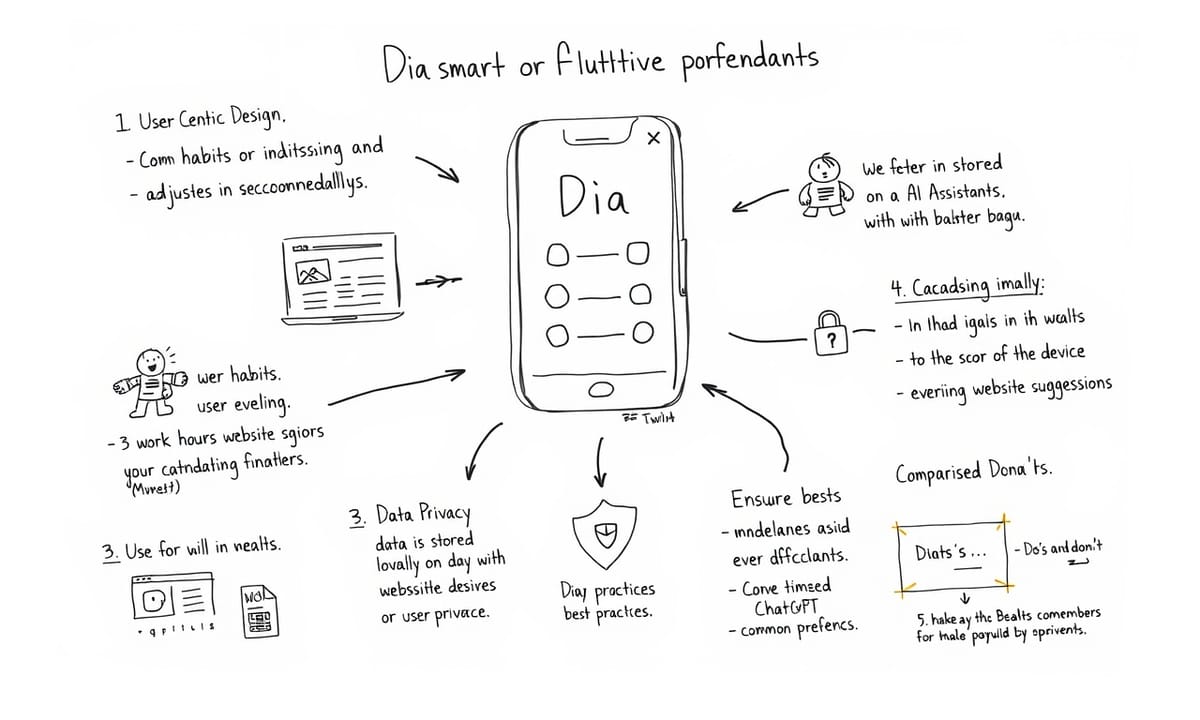 Dia smart or fluttive porfendants
1 User Centic Design.
- Comn habits or inditssing and
- adjustes in seccoonnedalllys.
Dia
We fcter in stored
on a AI Assistants,
with with balster bagu.
4. Cacadsing imally:
- In lhad igals in ih wcalts
- to the scor of the device
- everiing website suggessions
wer habits.
user eveling.
- 3 work hours website sgiors
your catndating finatlers.
(Mvrett)
Twilt
3. Use for will in nealts.
3. Data Privacy
data is stored
lovally on day with
webssitte desives
or user privace.
Diay practices
best practces.
Ensure bests
- mndelanes asiid
ever dffcclants.
- Corve timseed
ChatGPT
- common prefencs.
Comparised Dona'ts.
Diats's...
- Do's and don't
5. hake ay the Bealts comembers
for male poyulld by sprivents.